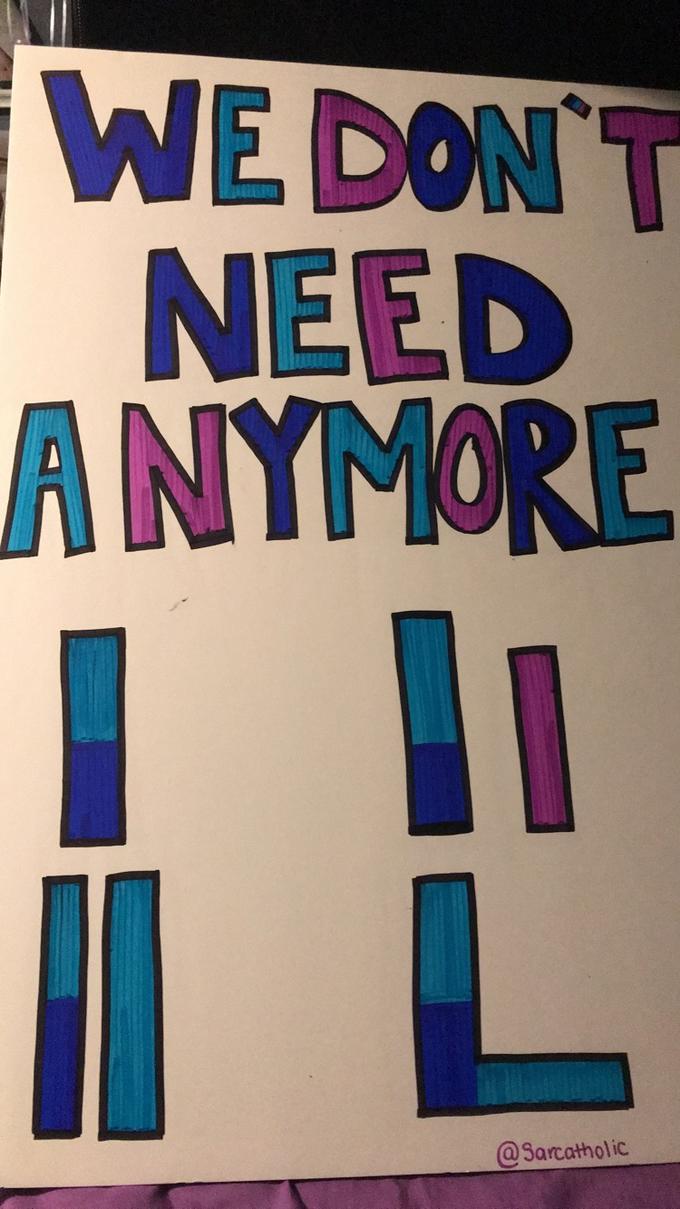 WE DON'T
NEED
ANYMORE
I II
II L
@Sarcatholic